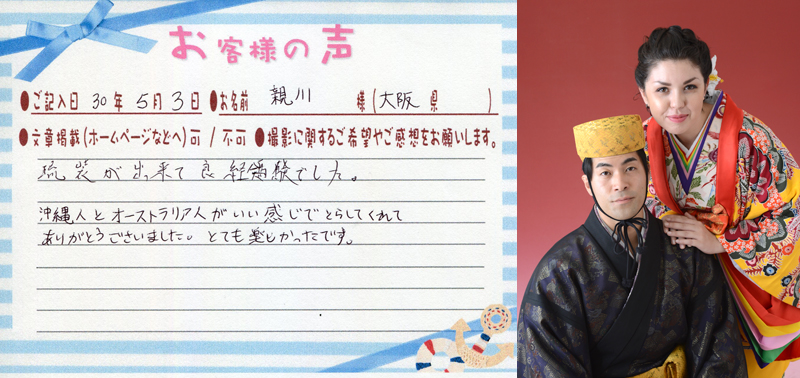 お客様の声
●ご記入日 30年 5月 3日 ●お名前 親川 様(大阪 県 )
●文章掲載(ホームページなどへ)可 / 不可 ●撮影に関するご希望やご感想をお願いします。
琉装が出来て良い経験でした。
沖縄人とオーストラリア人がいい感じでとらしてくれて
ありがとうございました。とても楽しかったです。